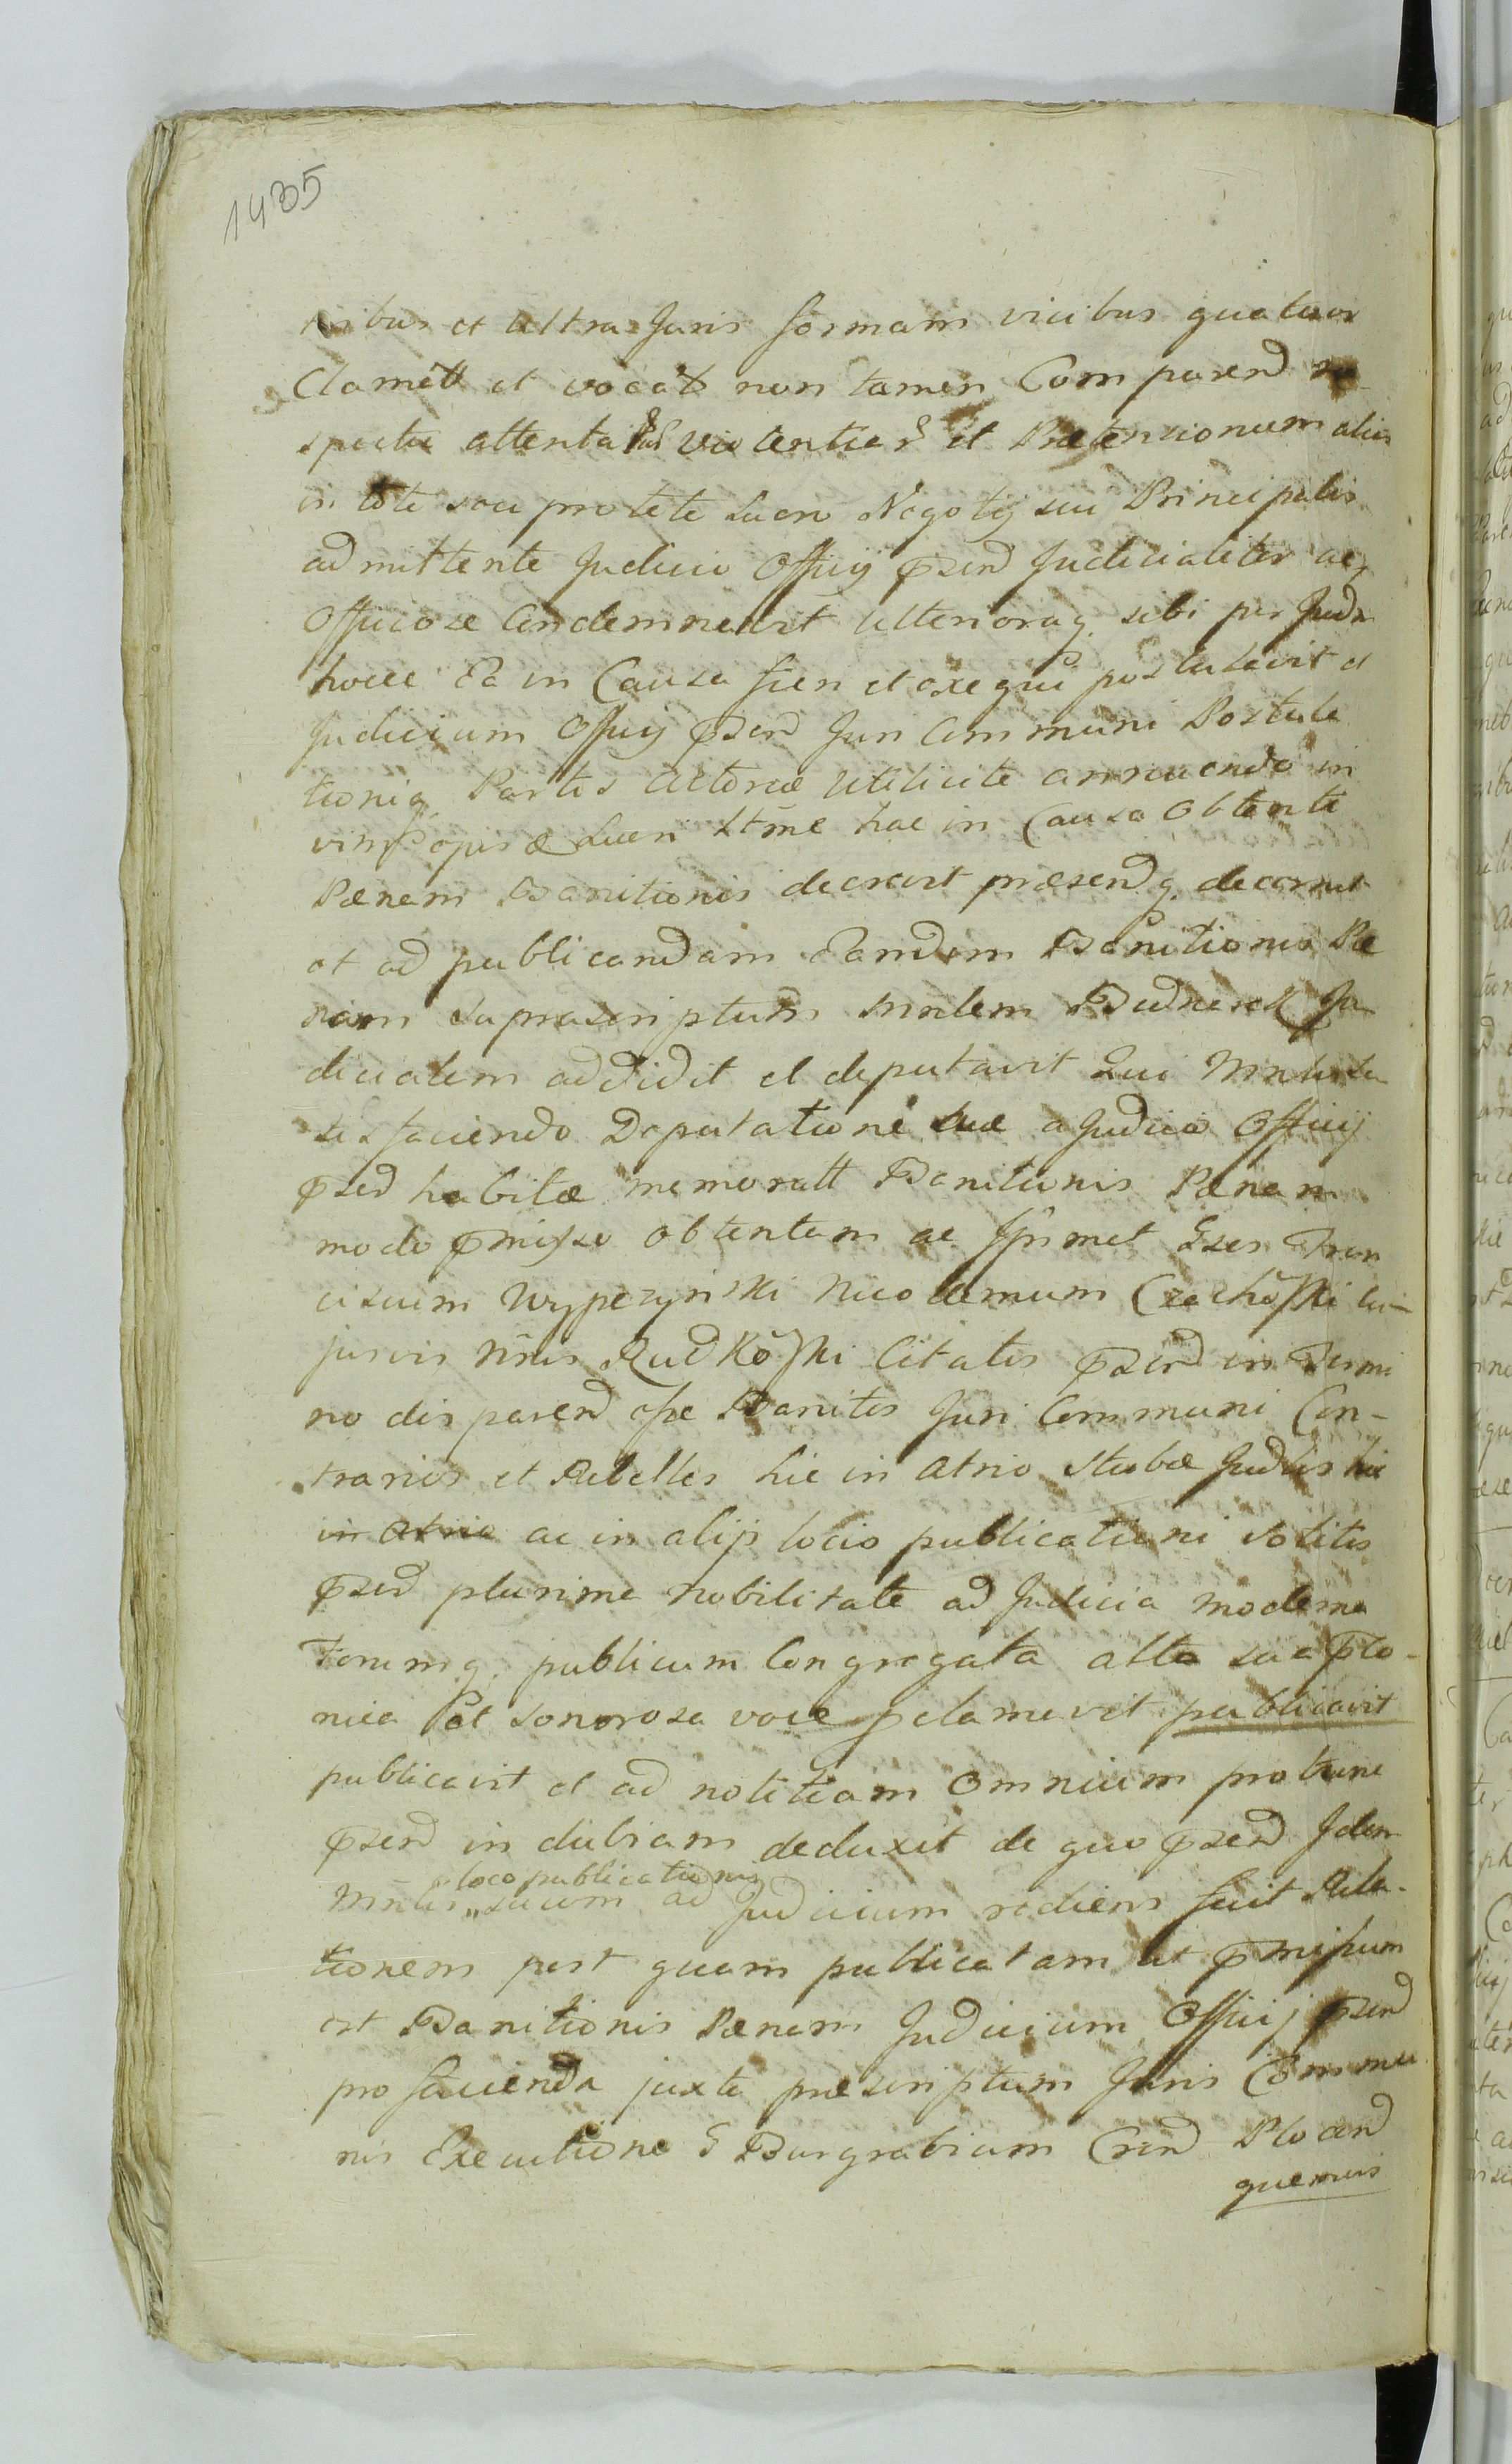 1435
ribus et ultra Juris formam vicibus quatuor
Clamatt et vocatt non tamen Comparend re
spectu attentatar violentiar et Praetensionum alias
in toto seu pro tota lucro Negotij sui Principalis
admittente Judicio Officij pzend Judicialiter ac
Officiose Condemnavit Ulterioraq. sibi per Judm
hocce Ea in Causa fieri et exequi postulavit et
Judicium Officij pzend Juri Communi Postula
tioniq. Partis Actoreae Utilicite annuendo in
vim opis Lucri Stme hac in Causa Obtenti
Paenam Bannitionis decrevit praesendq. decernit
et ad publicandam Eandem Banitionis Pae
nam suprascriptum Mnlem Budnerek Ju
dicialem addidit et deputavit Qui Mnlis sa
tisfaciendo Deputationi suae a Judicio Officij
pzed habitae memoratt Banitionis Paenam
modo pmisso obtentam ac Ipsmet Gsos Fran
ciscum Wypczynski Nicodemum Czachoski cu
jusvis Nris Rudkoski Citatos pzend in Termi
no disparend ofse Banitos Juri Communi Con-
trarios et Rebelles hic in Atrio Stubae Judlis hic
in Atrio ac in alijs locis publicationi solitis
pzed plurima Nobilitate ad Judicia moderna
Forumq. publicum Congregata alta sua Plo-
nica Pat sonorosa voce pclamavit publicavit
publicavit et ad notitiam Omnium protunc
pzend in dubiam deduxit de quo pzend Idem
loco publicationis
Mnlis „ suum ad Judicium rediens fecit Rela-
tionem post quam publicatam ut pmissum
est Banitionis Paenam Judicium Officij pzend
pro facienda juxta praescriptum Juris Commu
nis Executione G Burgrabium Cren Plocen
quemvis